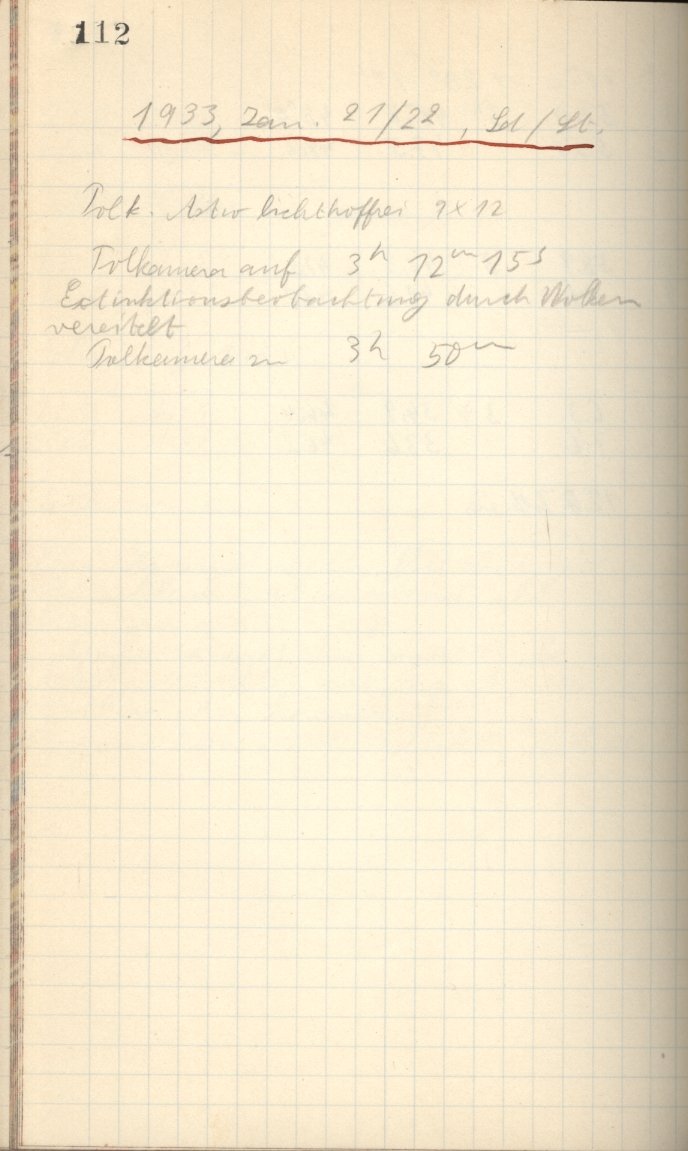 112
1933, Jan. 21/22, Sd/St.
Polk. Astro lichthoffrei 9x12
Polkamera auf 3h 12m 15s
Extinktionsbeobachtung durch Wolken
vereitelt
Polkamera zu 3h 50m